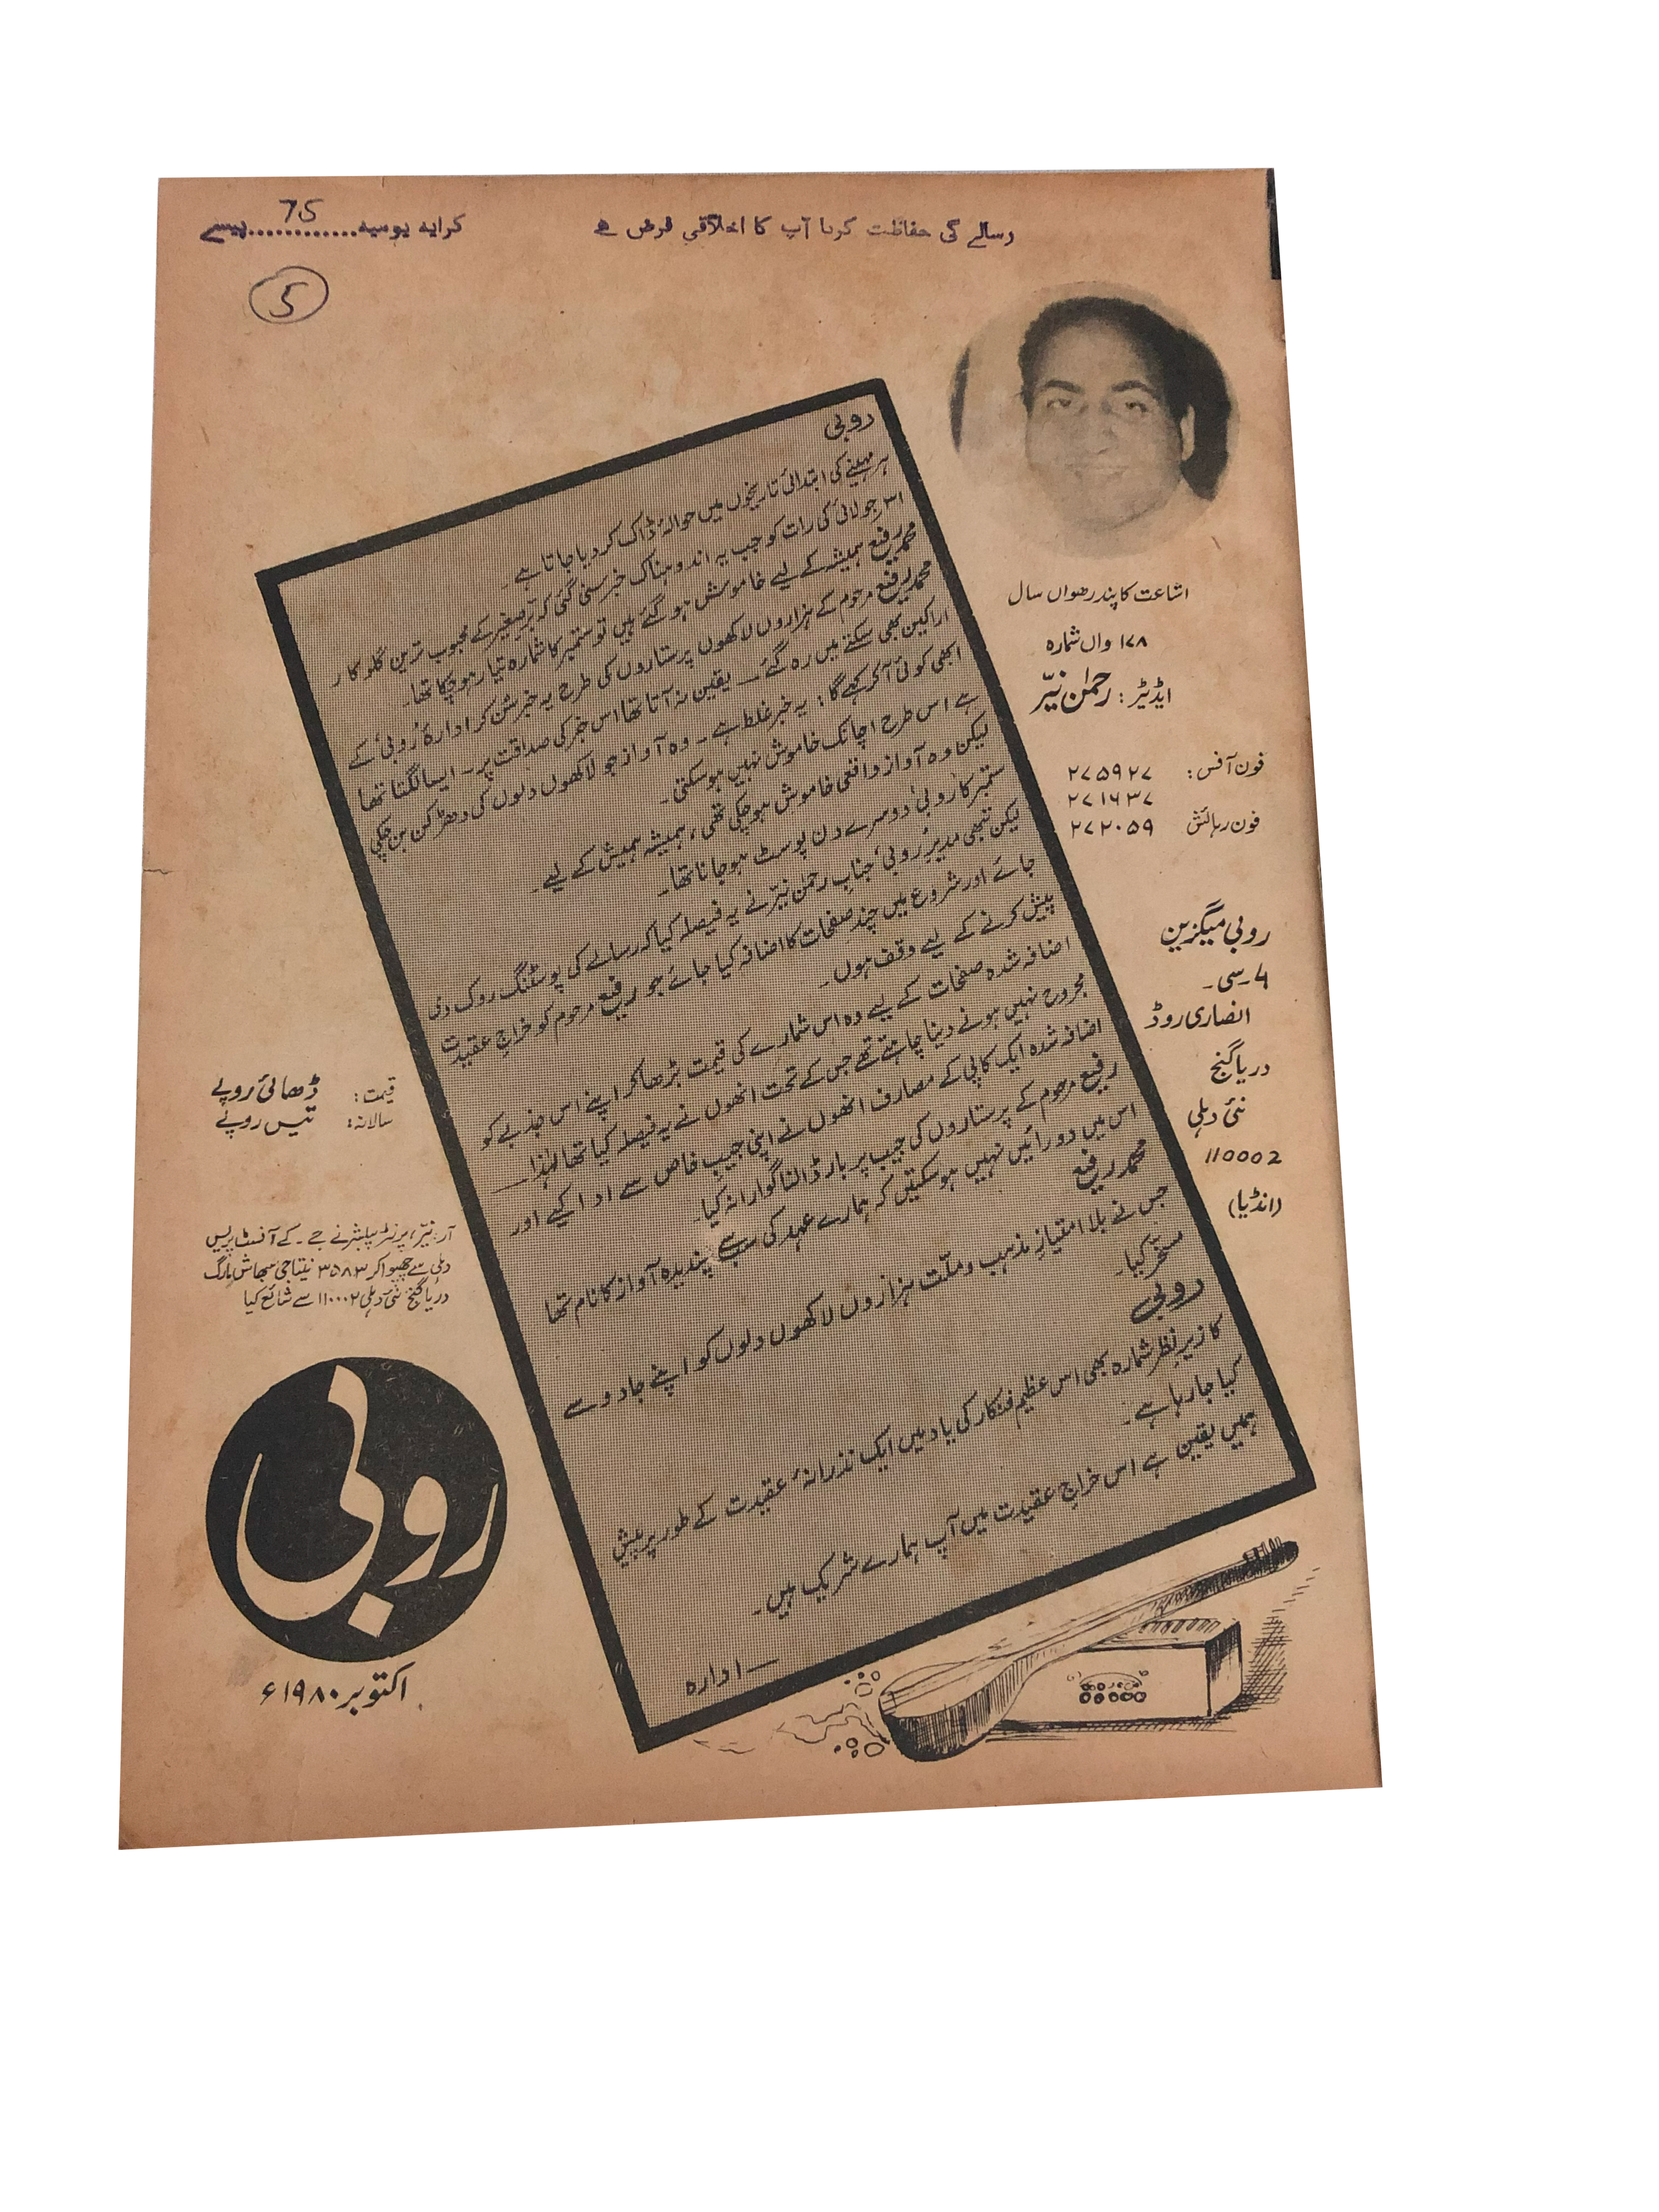 رسالے کی حفاظت کرنا آپ کا اخلاقی فرض ہے
کرایہ یومیہ............پیسے
75
5
اشاعت کا پندرھواں سال
۱۷۸ واں شمارہ
ایڈیٹر: رحمٰن نیّر
فون آفس: ۲۷۵۹۲۷
۲۷۱۶۳۷
فون رہائش ۲۷۲۰۵۹
روبی میگزین
۴۔سی۔
انصاری روڈ
دریا گنج
نئی دہلی
110002
(انڈیا)
روبی
ہر مہینے کی ابتدائی تاریخوں میں حوالۂ ڈاک کر دیا جاتا ہے۔
۳۱ر جولائی کی رات کو جب یہ اندوہناک خبر سنی گئی کہ برِّصغیر کے محبوب ترین گلوکار
محمد رفیع ہمیشہ کے لیے خاموش ہو گئے ہیں تو ستمبر کا شمارہ تیار ہو چکا تھا۔
محمد رفیع مرحوم کے ہزاروں لاکھوں پرستاروں کی طرح یہ خبر سُن کر ادارۂ 'روبی' کے
اراکین بھی سکتے میں رہ گئے ــ یقین نہ آتا تھا اس خبر کی صداقت پر۔ ایسا لگتا تھا
ابھی کوئی آکر کہے گا: یہ خبر غلط ہے۔ وہ آواز جو لاکھوں دلوں کی دھڑکن بن چکی
ہے اس طرح اچانک خاموش نہیں ہو سکتی۔
لیکن وہ آواز واقعی خاموش ہو چکی تھی، ہمیشہ ہمیش کے لیے۔
ستمبر کا 'روبی' دوسرے دن پوسٹ ہو جانا تھا۔
لیکن تبھی مدیرِ 'روبی' جناب رحمٰن نیّر نے یہ فیصلہ کیا کہ رسالے کی پوسٹنگ روک دی
جائے اور شروع میں چند صفحات کا اضافہ کیا جائے جو رفیع مرحوم کو خراجِ عقیدت
پیش کرنے کے لیے وقف ہوں۔
اضافہ شدہ صفحات کے لیے وہ اس شمارے کی قیمت بڑھا کر اپنے اس جذبے کو
مجروح نہیں ہونے دینا چاہتے تھے جس کے تحت انھوں نے یہ فیصلہ کیا تھا لہٰذا ـــ
اضافہ شدہ ایک کاپی کے مصارف انھوں نے اپنی جیبِ خاص سے ادا کیے اور
رفیع مرحوم کے پرستاروں کی جیب پر بار ڈالنا گوارا نہ کیا۔
اس میں دو رائیں نہیں ہو سکتیں کہ ہمارے عہد کی سب سے پسندیدہ آواز کا نام تھا
محمد رفیع
جس نے بلا امتیازِ مذہب و ملّت ہزاروں لاکھوں دلوں کو اپنے جادو سے
مسخّر کیا۔
روبی
کا زیرِ نظر شمارہ بھی اس عظیم فنکار کی یاد میں ایک نذرانۂ عقیدت کے طور پر پیش
کیا جا رہا ہے۔
ہمیں یقین ہے اس خراجِ عقیدت میں آپ ہمارے شریک ہیں۔
ـــ ادارہ
قیمت: ڈھائی روپے
سالانہ: تیس روپے
آر۔نیّر، پرنٹر پبلشر نے جے۔کے آفسٹ پریس
دہلی سے چھپوا کر ۳۵۸۳ نیتا جی سبھاش مارگ
دریا گنج نئی دہلی ۱۱۰۰۰۲ سے شائع کیا
روبی
اکتوبر ۱۹۸۰ء